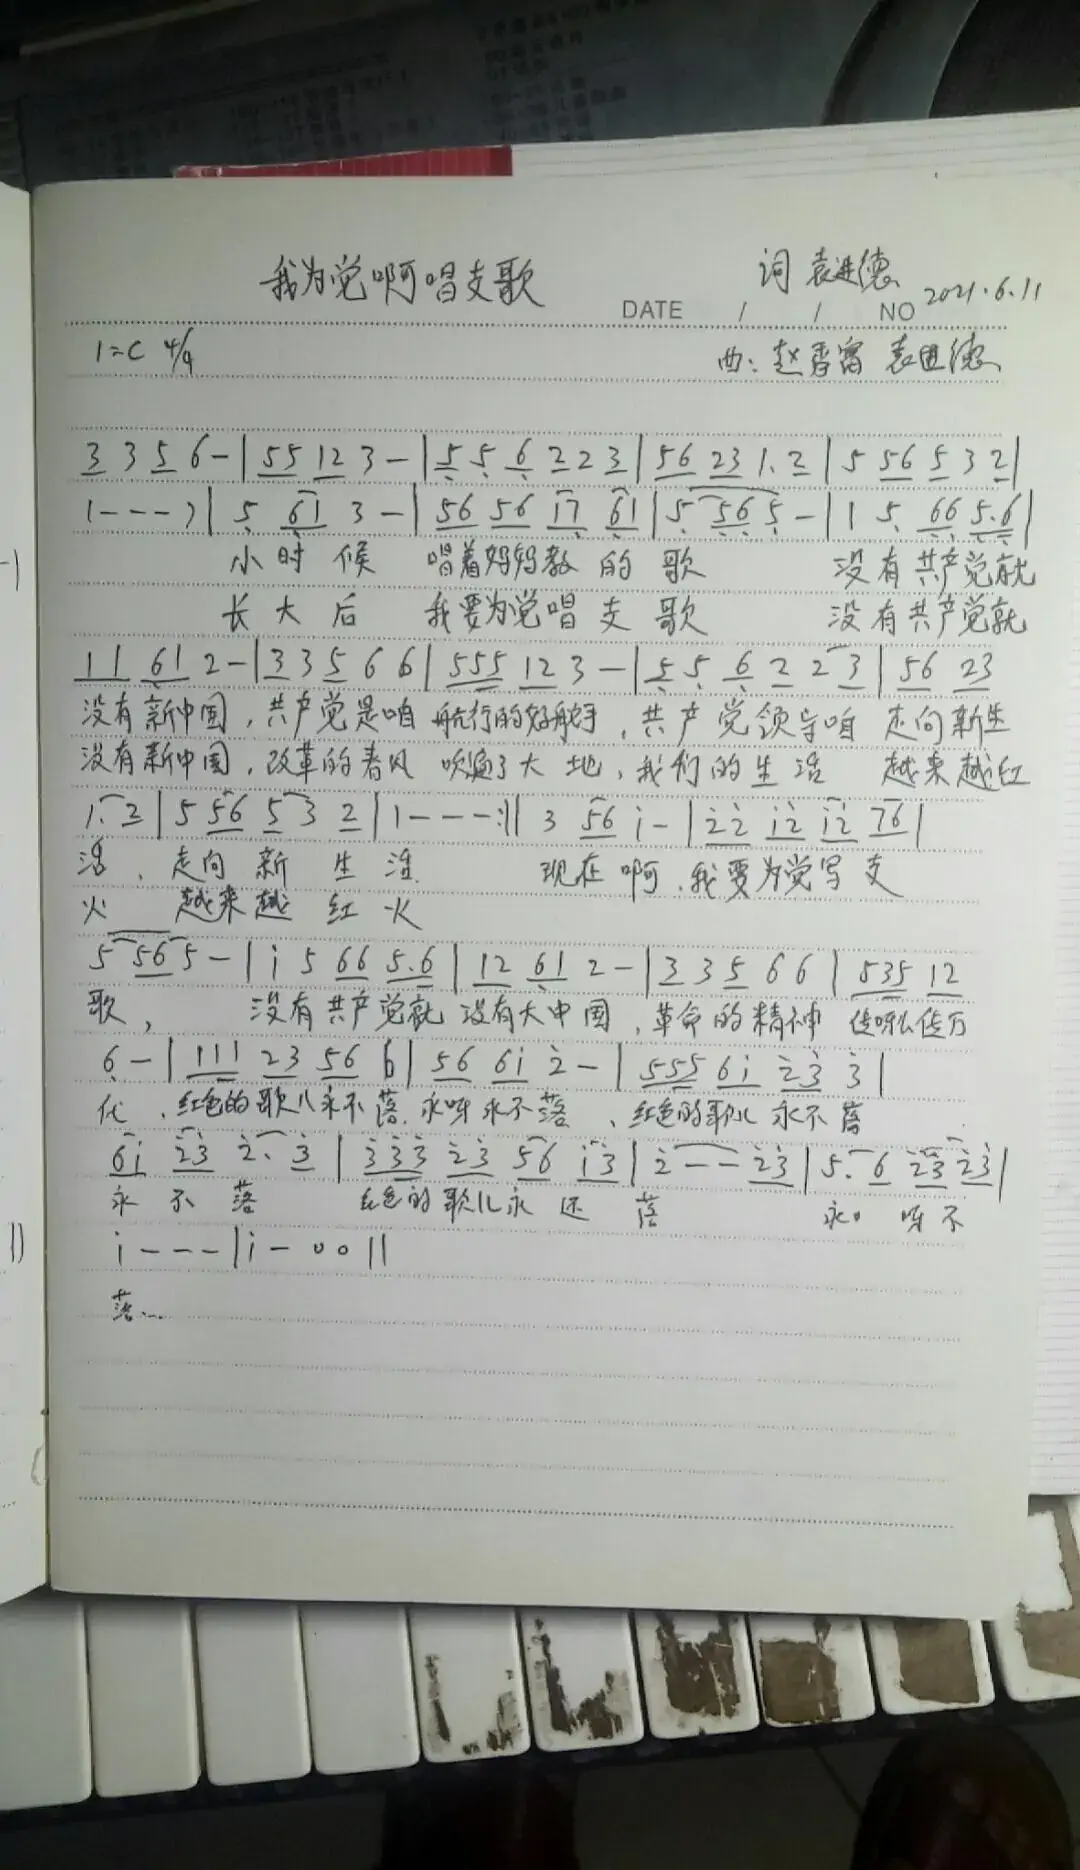 我为党啊唱支歌
词 袁进德
DATE / / NO 2021.6.11
1=C 4/4
曲: 赵香富 袁进德
3 3 5 6 - | 5 5 1 2 3 - | 5 5 6 2 2 3 | 5 6 2 3 1. 2 | 5 5 6 5 3 2 |
1 - - - ) | 5 6 1 3 - | 5 6 5 6 1 7 6 1 | 5 5 6 5 - | 1 5 6 6 5.6 |
小时候 唱着妈妈教的歌 没有共产党就
长大后 我要为党唱支歌 没有共产党就
1 1 6 1 2 - | 3 3 5 6 6 | 5 5 5 1 2 3 - | 5 5 6 2 2 3 | 5 6 2 3
没有新中国,共产党是咱 航行的好舵手,共产党领导咱 走向新生
没有新中国,改革的春风 吹遍了大地,我们的生活 越来越红
1. 2 | 5 5 6 5 3 2 | 1 - - - :|| 3 5 6 i - | 2 2 i 2 i 2 7 6 |
活,走向新生活 现在啊,我要为党写支
火 越来越红火
5 5 6 5 - | i 5 6 6 5.6 | 1 2 6 1 2 - | 3 3 5 6 6 | 5 3 5 1 2
歌, 没有共产党就 没有大中国,革命的精神 传呀么传万
6 - | 1 1 1 2 3 5 6 6 | 5 6 6 i 2 - | 5 5 5 6 i 2 3 3 |
代,红色的歌儿永不落,永呀永不落,红色的歌儿永不落
6 i 2 3 2. 3 | 3 3 3 2 3 5 6 i 3 | 2 - - 2 3 | 5. 6 2 3 2 3 |
永不落 红色的歌儿永还落 永呀不
i - - - | i - 0 0 ||
落...